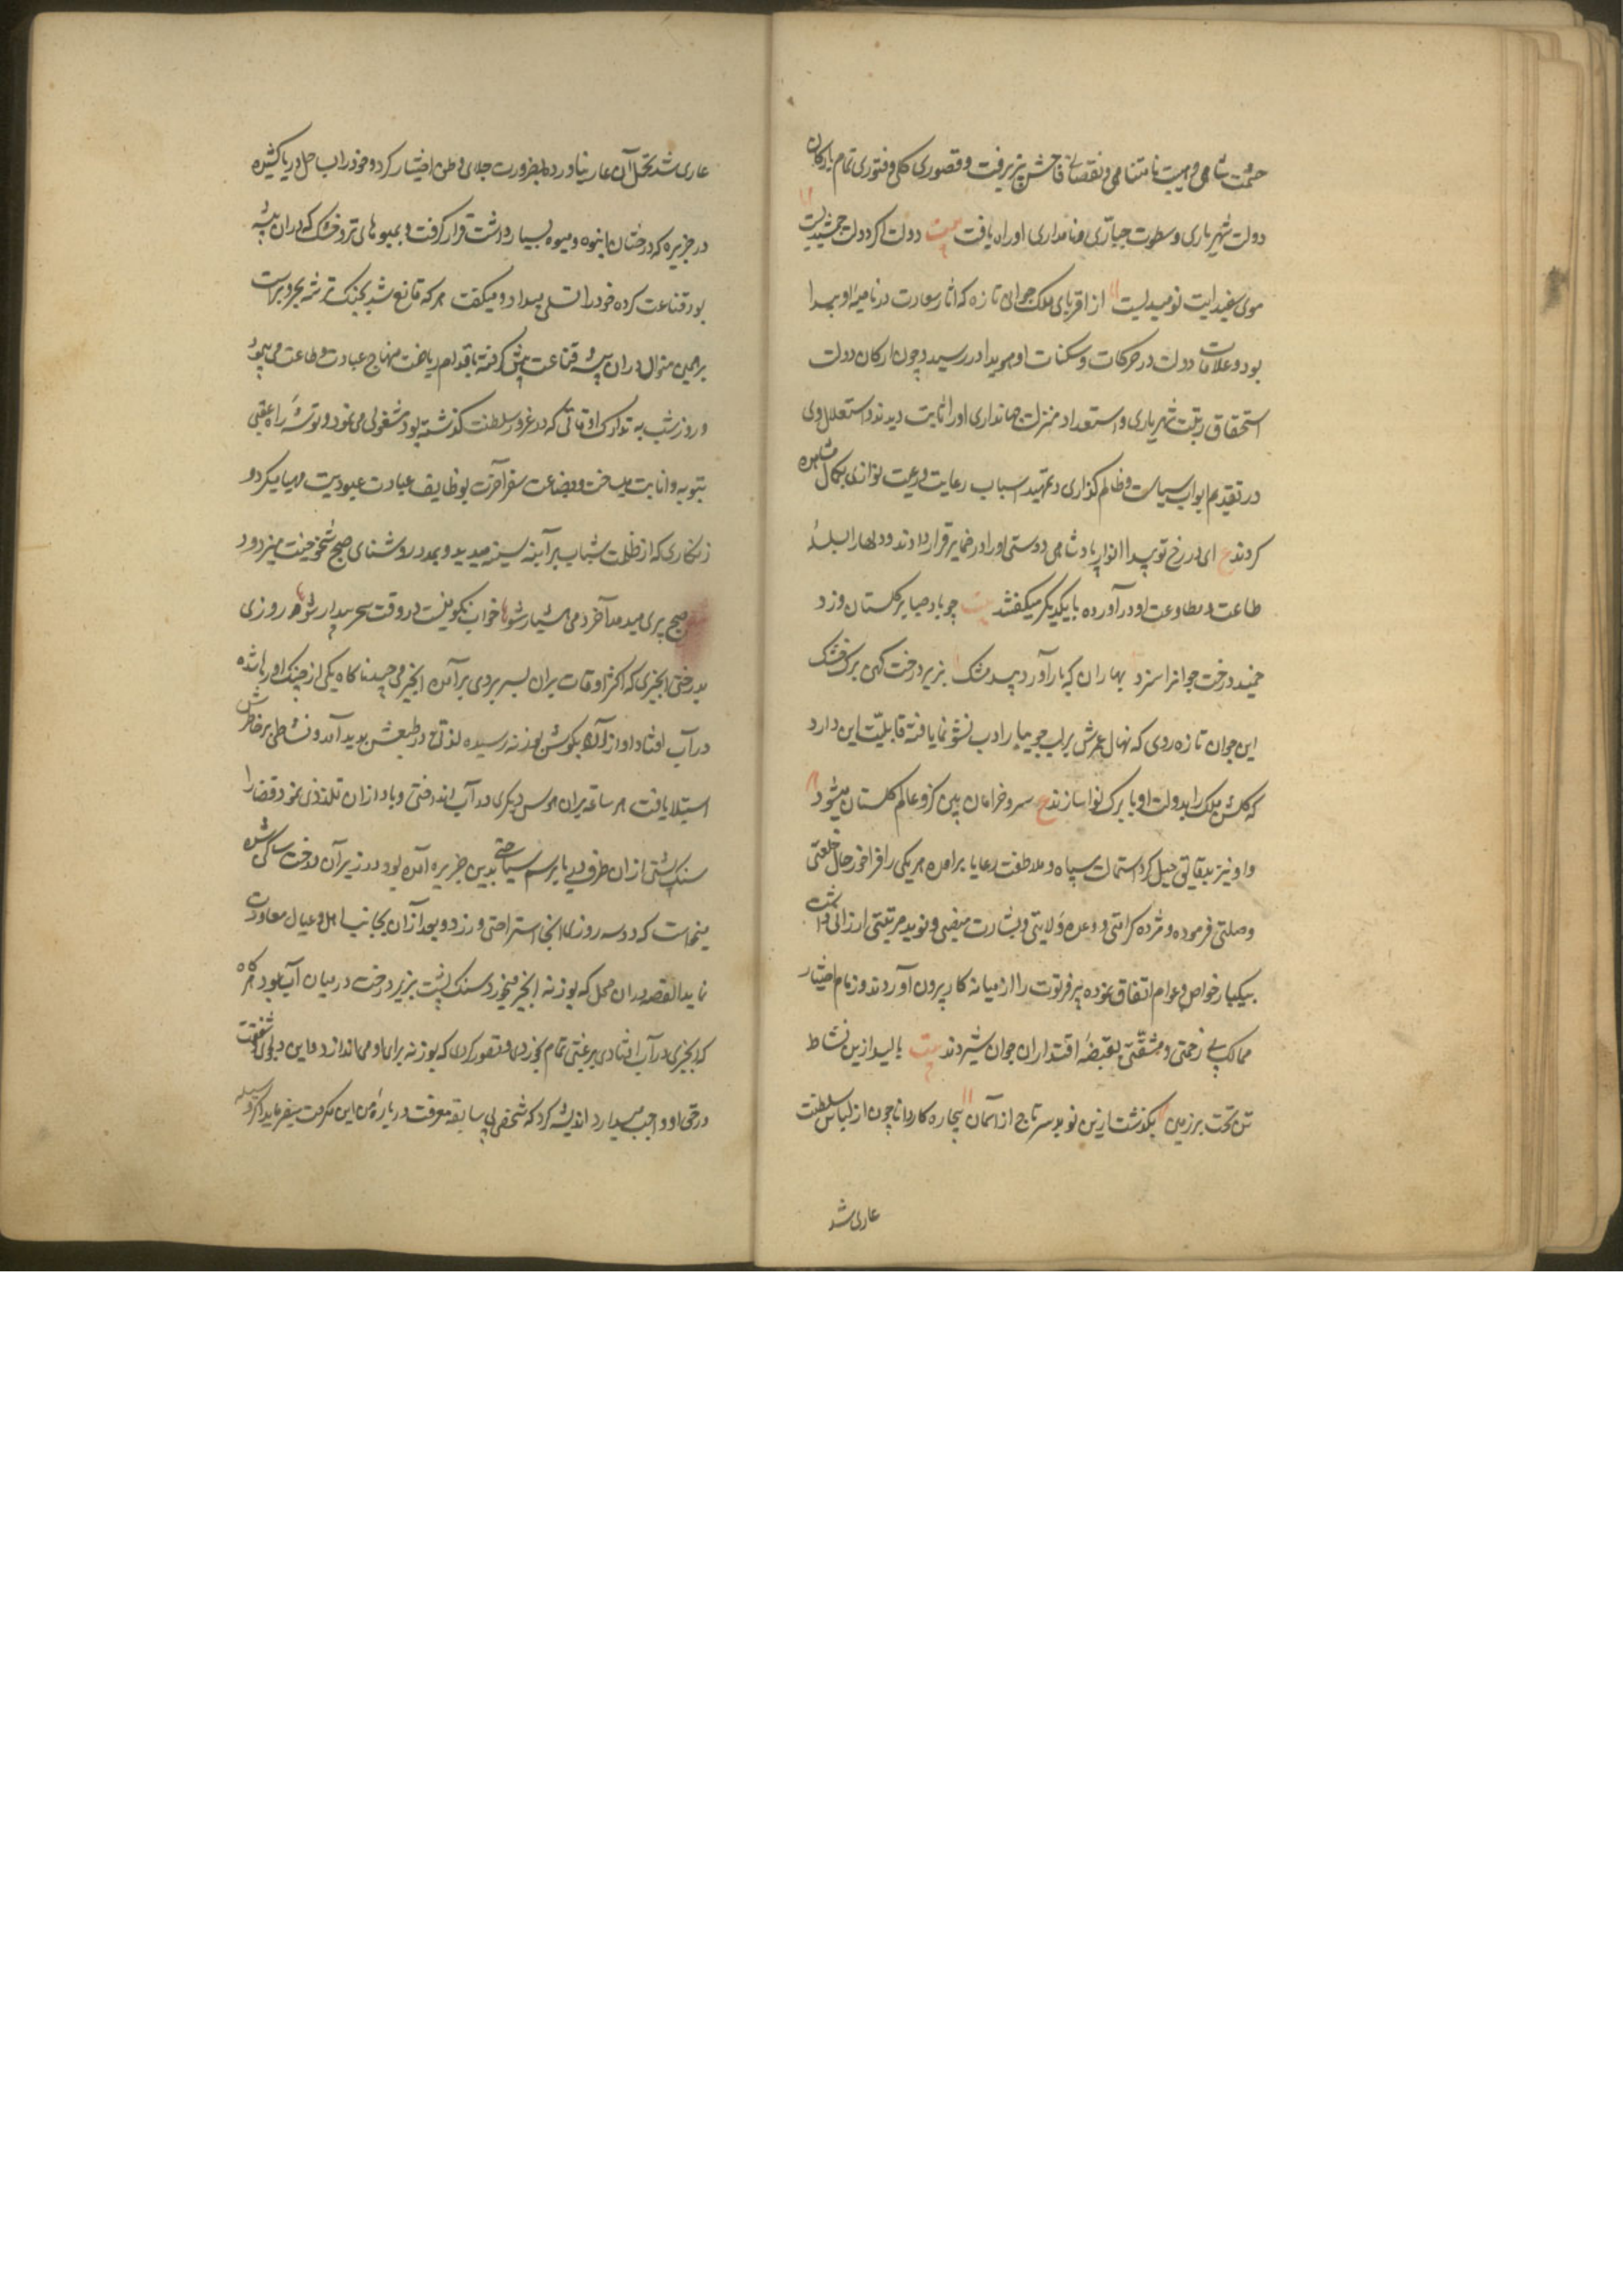 حشمت شاهی و هیبت نامتناهی و نقصانی فاحش پذیرفت و قصوری کلی و فتوری تمام بارکان
دولت شهریاری و سطوت جباری و نامداری او راه یافت بیت دولت اکر دولت جمشیدیست
موی سفید ایت نومیدیست از اقربای ملک جوانی تازه که اثار سعادت در ناصیه او پیدا
بود و علامات دولت در حرکات و سکنات او هویدا در رسید و چون ارکان دولت
استحقاق رتبت شهریاری و استعداد منزلت جهانداری او را ثابت دیدند و استقلال وی
در تقدیم ابواب سیاست و ظالم کذاری و تمهید اسباب رعایت و رعیت نوازی بکمال مشاهده
کردند ع ای در رخ تو پیدا انوار پادشاهی دوستی او را در ضمایر قرار دادند و دلها را بسلسلهٔ
طاعت و مطاوعت او در آورده با یکدیکر میکفتند بیت چو باد صبا بر کلستان وزد
چمیدن درخت جوانرا سزد بهاران که بار آورد بید مشک بریزد درخت کهن برک خشک
این جوان تازه روی که نهال عمرش بر لب جویبار ادب نشو نما یافته قابلیت این دارد
که کلشن ملک را بدولت او با برک و نوا سازند ع سرو خرامان بین کزو عالم کلستان میشود
و او نیز بدقایق حیل کرد استمالت سپاه و ملاطفت رعایا برامده هر یکی را فراخور حال خلعتی
وصلتی فرموده و مژده کرامتی و وعده ولایتی و بشارت منصبی و نوید مرتبتی ارزانی داشت
بیکبار خواص و عوام اتفاق نموده پیر فرتوت را از میانه کار بیرون آوردند و زمام اختیار
ممالک بی زحمتی و مشقتی بقبضهٔ اقتدار ان جوان سپردند بیت بالید ازین نشاط
تن تخت بر زمین بکذشت ازین نوید سر تاج از آسمان بیچاره کاردانا چون از لباس سلطنت
عاری شد
عاری شد تحمل آن عار نیاورد بضرورت جلای وطن اختیار کرد و خود را بساحل دریا کشیده
در جزیره که درختان انبوه و میوه بسیار داشت قرار کرفت و بمیوهای تر و خشک که در ان بیشه
بود قناعت کرده خود را تسلی میداد و میکفت هر که قانع شد بخشک و تر شه بحر و برست
برهمین منوال در ان بیشه قناعت پیش کرفته باقدام ریاضت منهاج عبادت و طاعت می پیمود
و روز شب به تدارک اوقاتی که در غرور سلطنت کذشته بود مشغولی می نمود و توشهٔ راه عقبی
بتوبه و انابت میساخت و بضاعت سفر آخرت بوظایف عبادت عبودیت مهیا میکرد و
زنکاری که از ظلمت شباب بر آینه سینه میدید و بمدد روشنای صبح شیخوخیت میزدود
صبح پیری میدمد آخر دمی هشیار شو خواب نکو نیست در وقت سحر بیدار شو روزی
بدرختی انجیری که اکثر اوقات بران بسر بردی برآمده انجیر می چید ناکاه یکی از چنک او رها شده
در آب افتاد اواز آن بکوش بوزنه رسیده لذتی در طبعش پدید آمد و نشاطی بر خاطرش
استیلا یافت هر ساعه بران هوس دیکری در آب انداختی و باواز ان تلذذی نمود قضا را
سنک پشتی از ان طرف دریا برسم سیاحتی بدین جزیره آمده بود و در زیر آن درخت ساکن شده
میخواست که دو سه روز انجا استراحتی ورزد و بعد از آن بجانب اهل و عیال معاودت
نماید القصه در ان محل که بوزنه انجیر میخورد سنک پشت بزیر درخت در میان آب بود هر کاه
که انجیری در آب افتادی برغبتی تمام بخوردی و تصور کردی که بوزنه برای او می اندازد و این دلجوی و شفقت
در حق او واجب میدارد اندیشه کرد که شخصی بی سابقه معرفت در بارهٔ من این مکرمت میفرماید اکر وسیله